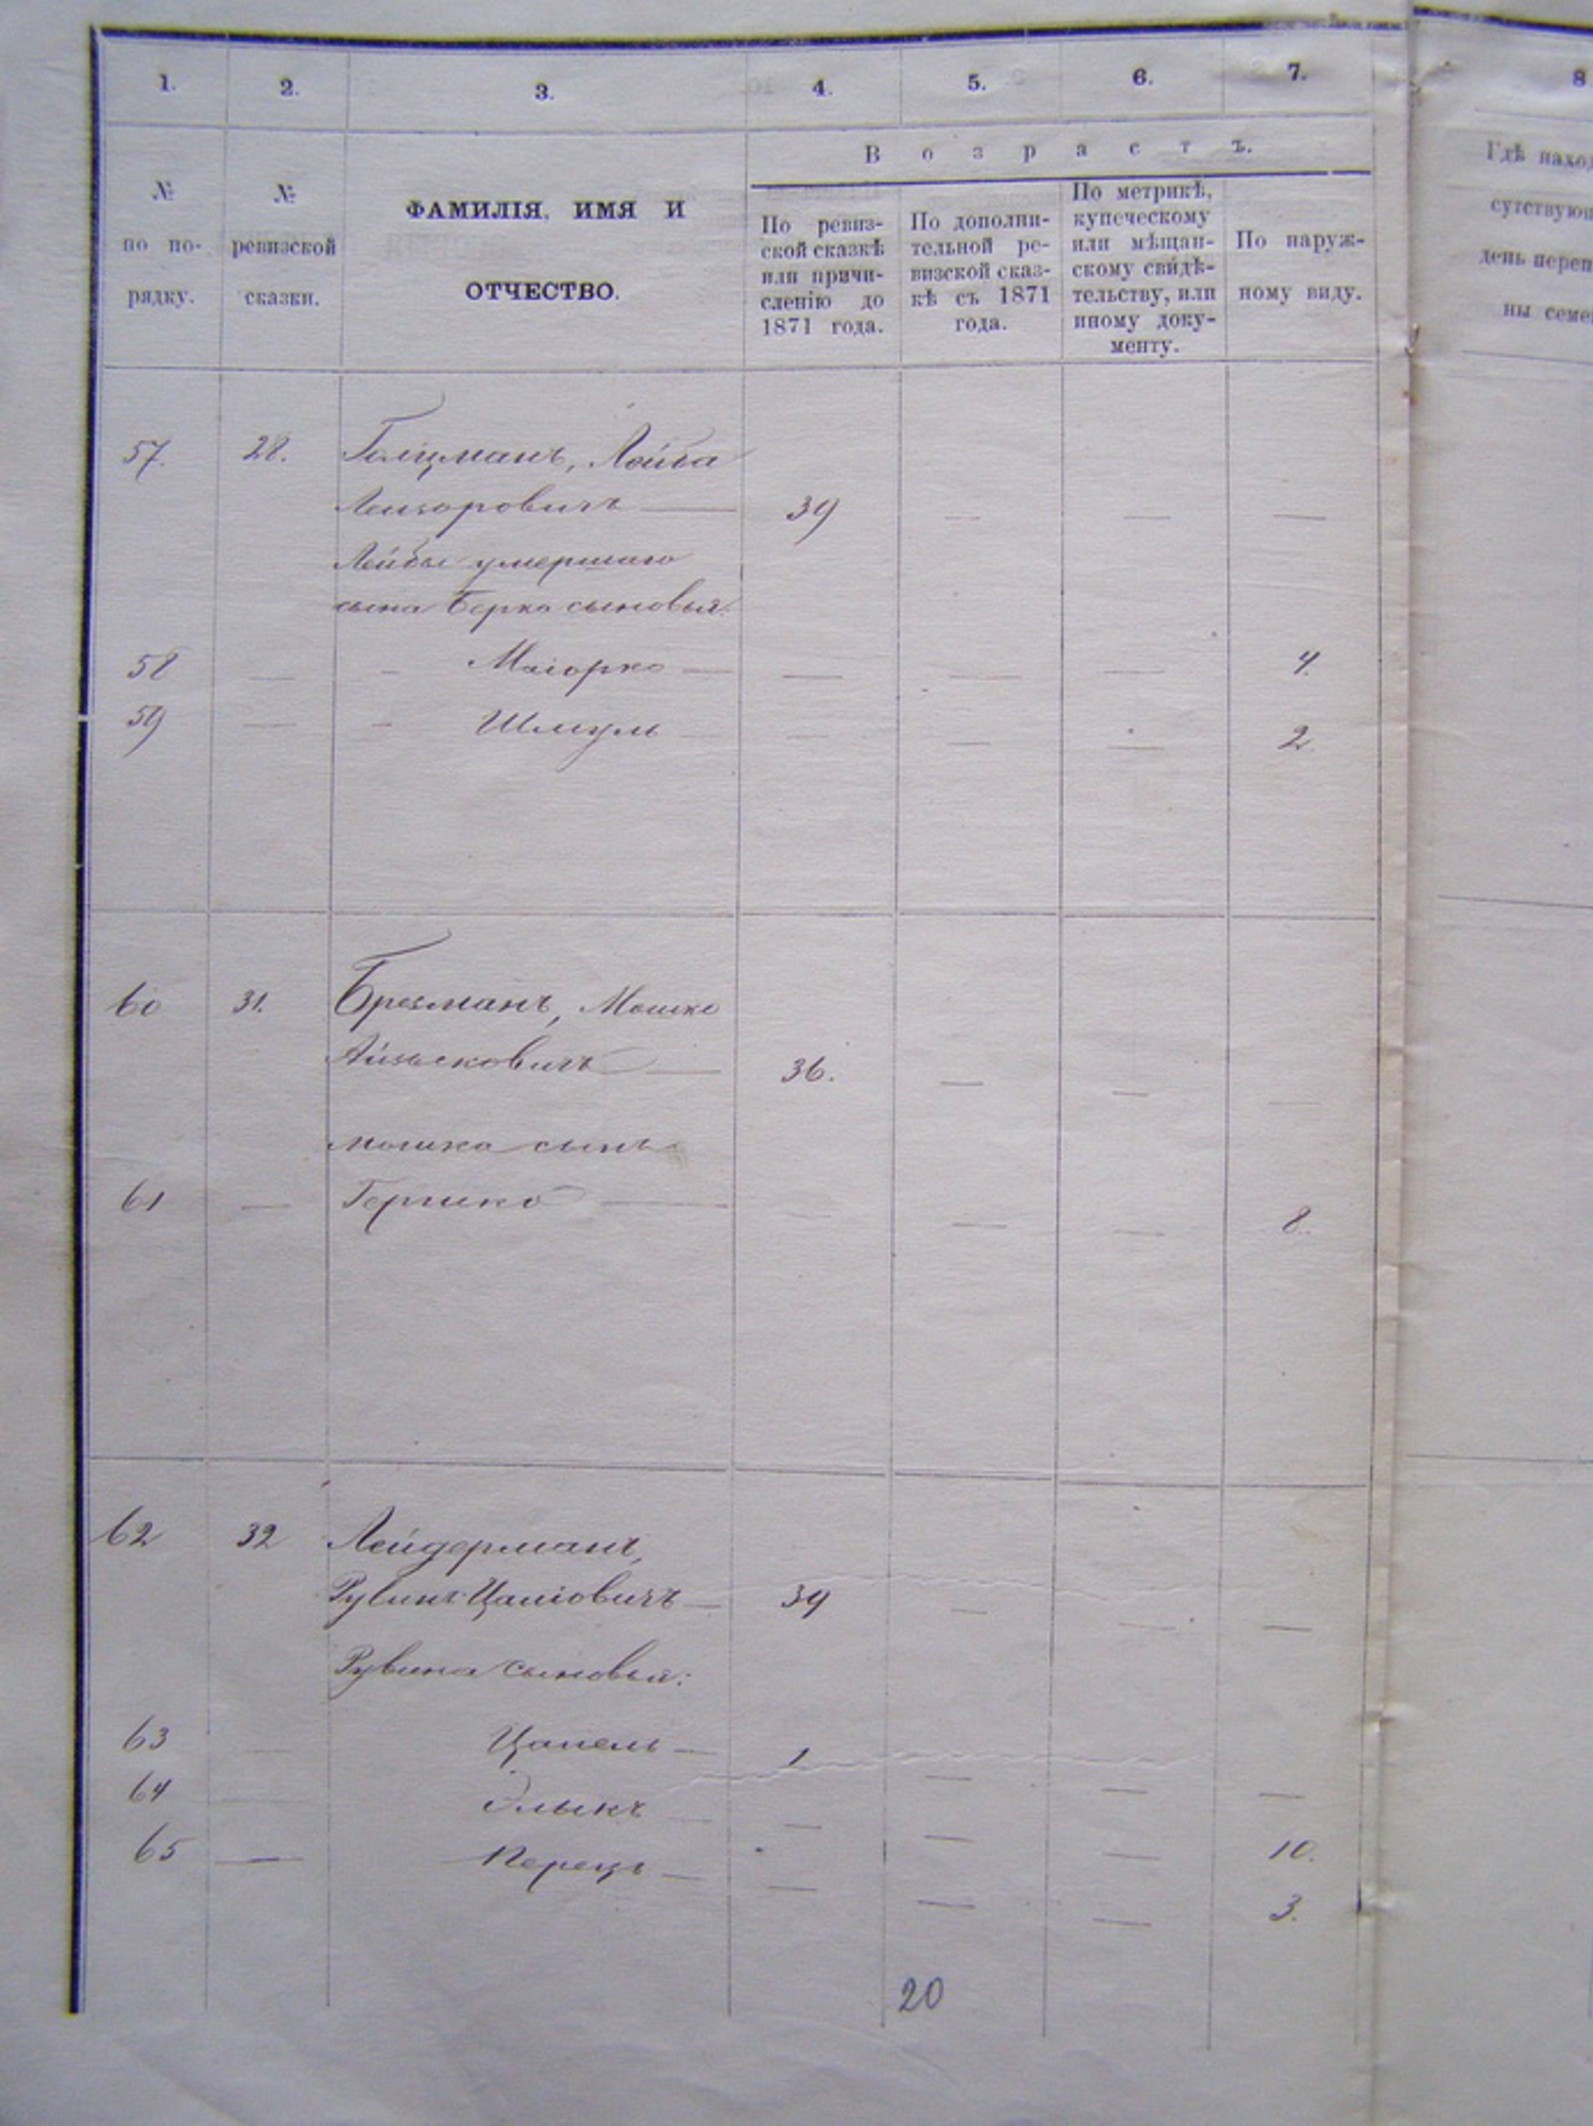 1. 2. 3. 4. 5. 6. 7. 8
№ по по-рядку.
№ ревизской сказки.
ФАМИЛІЯ, ИМЯ И
ОТЧЕСТВО.
Возрастъ.
По ревиз-
ской сказкѣ
или причи-
сленію до
1871 года.
По дополни-
тельной ре-
визской сказ-
кѣ съ 1871
года.
По метрикѣ,
купеческому
или мѣщан-
скому свидѣ-
тельству, или
иному доку-
менту.
По наруж-
ному виду.
Гдѣ наход
сутствующ
день переп
ны семе
57. 28. Голцманъ, Лейба
Лейзоровичъ — 39 — — —
Лейбы умершаго
сына Берка сыновья:
58 — – Маіорко — — — — 4.
59 — – Шмуль — — — — 2.
60 31. Брезманъ, Мошко
Айзыковичъ — 36. — — —
Мошка сынъ
61 — Гершко — — — — 8.
62 32 Лейдерманъ,
Рувинъ Цаліовичъ — 39 — — —
Рувина сыновья:
63 — Цапель — 1 — — —
64 — Элыкъ — — — — 10.
65 — Перецъ — — — — 3.
20